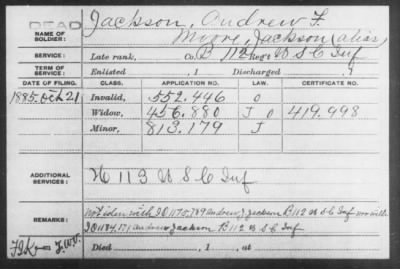 DEAD
NAME OF SOLDIER: Jackson, Andrew F.
Moore, Jackson (alias)
SERVICE: Late rank, Co. B 112 Reg't U S C Inf
TERM OF SERVICE: Enlisted , 1 Discharged , 1
DATE OF FILING. CLASS. APPLICATION NO. LAW. CERTIFICATE NO.
1885 Oct 21 Invalid, 552.446 O
Widow, 456.880 J O 419.998
Minor, 813.179 J
ADDITIONAL SERVICES: H 113 U S C Inf
REMARKS: Not iden with I O 1175.789 Andrew J Jackson B 112 U S C Inf nor with
I O 1184.171 Andrew Jackson B 112 U S C Inf
Died , 1 , at